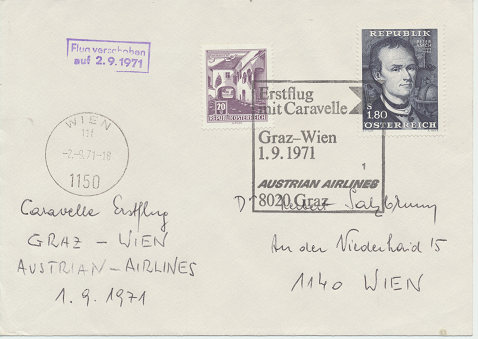 Flug verschoben
auf 2.9.1971
WIEN
111
-2.-9.71-18
1150
20
REPUBLIK ÖSTERREICH
REPUBLIK
PETER
ANICH
S
1.80
ÖSTERREICH
Erstflug
mit Caravelle
Graz–Wien
1.9.1971
1
AUSTRIAN AIRLINES
8020 Graz
Caravelle Erstflug
GRAZ – WIEN
AUSTRIAN – AIRLINES
1. 9. 1971
Salzbrunn
An der Niederhaid 15
1140 WIEN